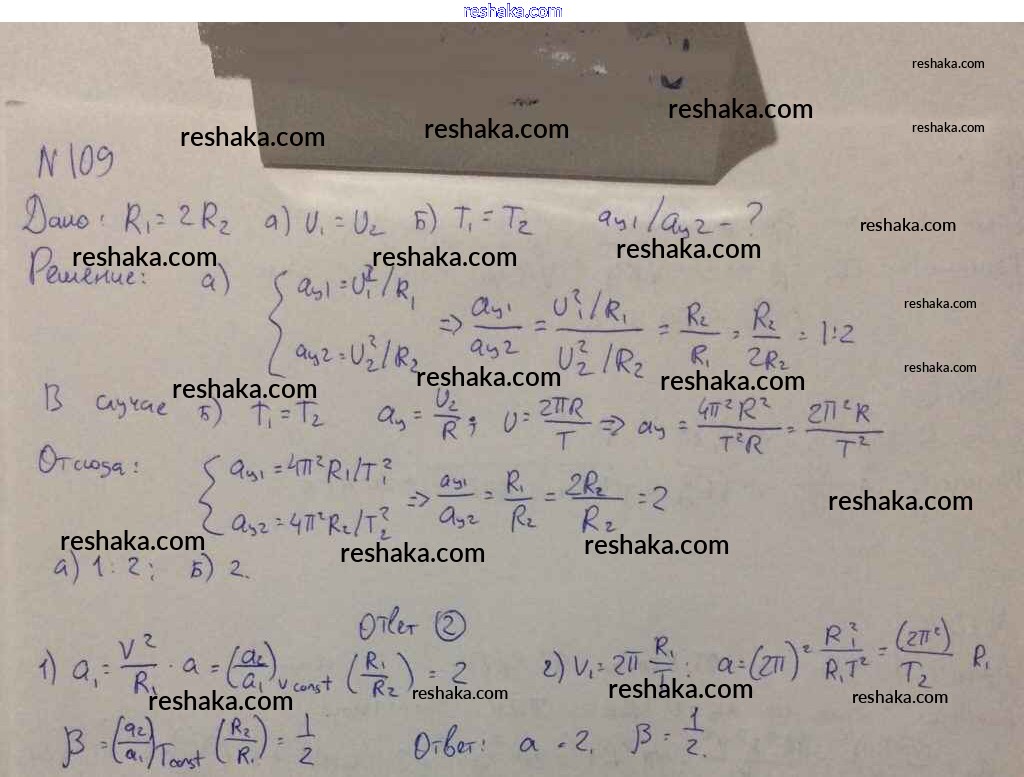 reshaka.com
reshaka.com
reshaka.com
reshaka.com
reshaka.com
reshaka.com
N 109
Дано: R₁ = 2R₂ а) υ₁ = υ₂ Б) T₁ = T₂ aц1/aц2 - ?
reshaka.com
reshaka.com
reshaka.com
reshaka.com
Решение: а) { aц1 = υ₁²/R₁
aц2 = υ₂²/R₂ => aц1/aц2 = (υ₁²/R₁)/(υ₂²/R₂) = R₂/R₁ = R₂/2R₂ = 1:2
reshaka.com
reshaka.com
reshaka.com
reshaka.com
reshaka.com
В случае Б) T₁ = T₂ aц = υ₂/R; υ = 2πR/T => aц = 4π²R²/T²R = 2π²R/T²
Отсюда: { aц1 = 4π²R₁/T₁²
aц2 = 4π²R₂/T₂² => aц1/aц2 = R₁/R₂ = 2R₂/R₂ = 2
reshaka.com
reshaka.com
reshaka.com
reshaka.com
а) 1:2; Б) 2.
Ответ ②
1) a₁ = V²/R₁ · a = (a₂/a₁)v const (R₁/R₂) = 2 2) V₁ = 2π R₁/T; a = (2π)² R₁²/R₁T² = (2π²)/T₂ R₁
reshaka.com
reshaka.com
reshaka.com
reshaka.com
β = (a₂/a₁)T const (R₂/R₁) = 1/2 Ответ: a = 2, β = 1/2.